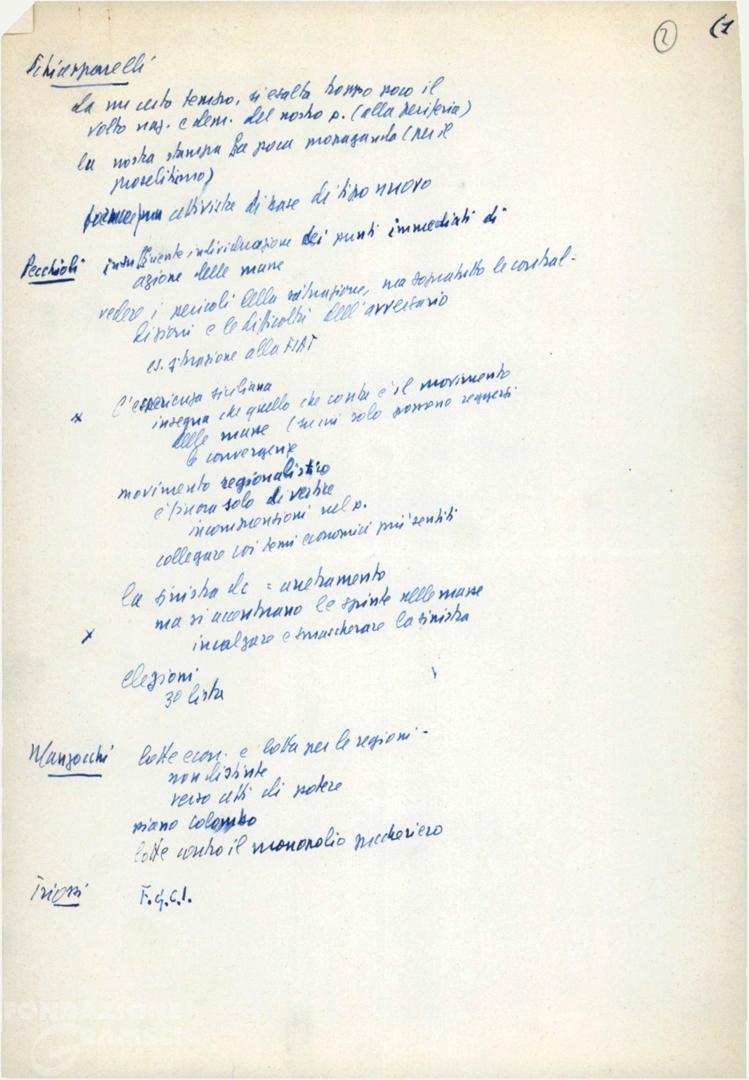 2 (1
Schiapparelli
da un certo tempo, si esalta troppo poco il
volto naz. e dem. del nostro p. (alla periferia)
la nostra stampa fa poca propaganda (per il
proselitismo)
attiviste di base di tipo nuovo
Pecchioli insufficiente individuazione dei punti immediati di
azione delle masse
vedere i pericoli della situazione, ma sopratutto le contrad-
dizioni e le difficoltà dell'avversario
es. situazione alla FIAT
x l'esperienza siciliana
insegna che quello che conta è il movimento
delle masse (su cui solo possono reggersi
le convergenze
movimento regionalistico
è finora solo di vertice
incomprensioni nel p.
collegare coi temi economici più sentiti
la sinistra dc = arretramento
ma si accentuano le spinte nelle masse
x incalzare e smascherare la sinistra
elezioni
3a lista
Manzocchi lotte econ. e lotta per le regioni -
non distinte
verso atti di potere
piano colombo
lotte contro il monopolio zuccheriero
Triossi F.g.c.i.
FONDAZIONE
GRAMSCI